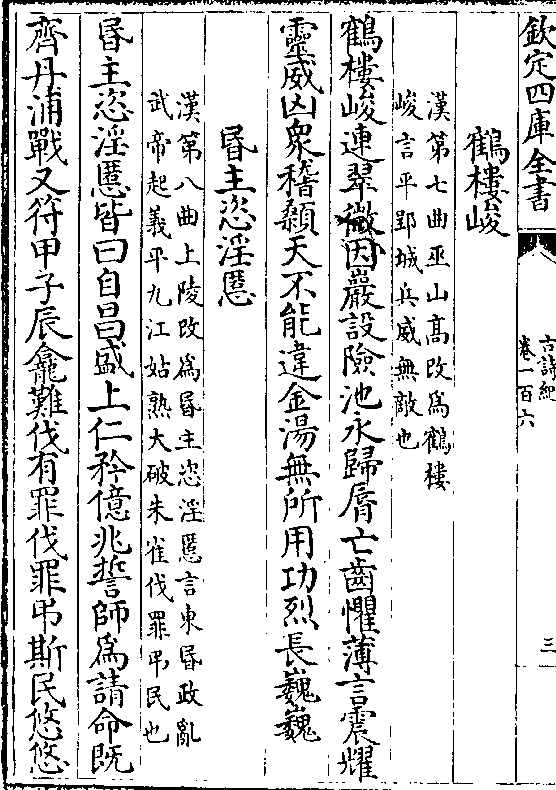 欽定四庫全書
古詩紀
卷一百六
三
鶴樓峻
漢第七曲巫山髙改為鶴樓
峻言平郢城兵威無敵也
鶴樓峻連翠微因巖設險池永歸脣亡齒懼薄言震耀
靈威凶衆稽顙天不能違金湯無所用功烈長巍巍
昬主恣淫慝
漢第八曲上陵改為昬主恣淫慝言東昬政亂
武帝起義平九江姑熟大破朱雀伐罪弔民也
昬主恣淫慝皆曰自昌盛上仁矜億兆誓師為請命既
齊丹浦戰又符甲子辰龕難伐有罪伐罪弔斯民悠悠